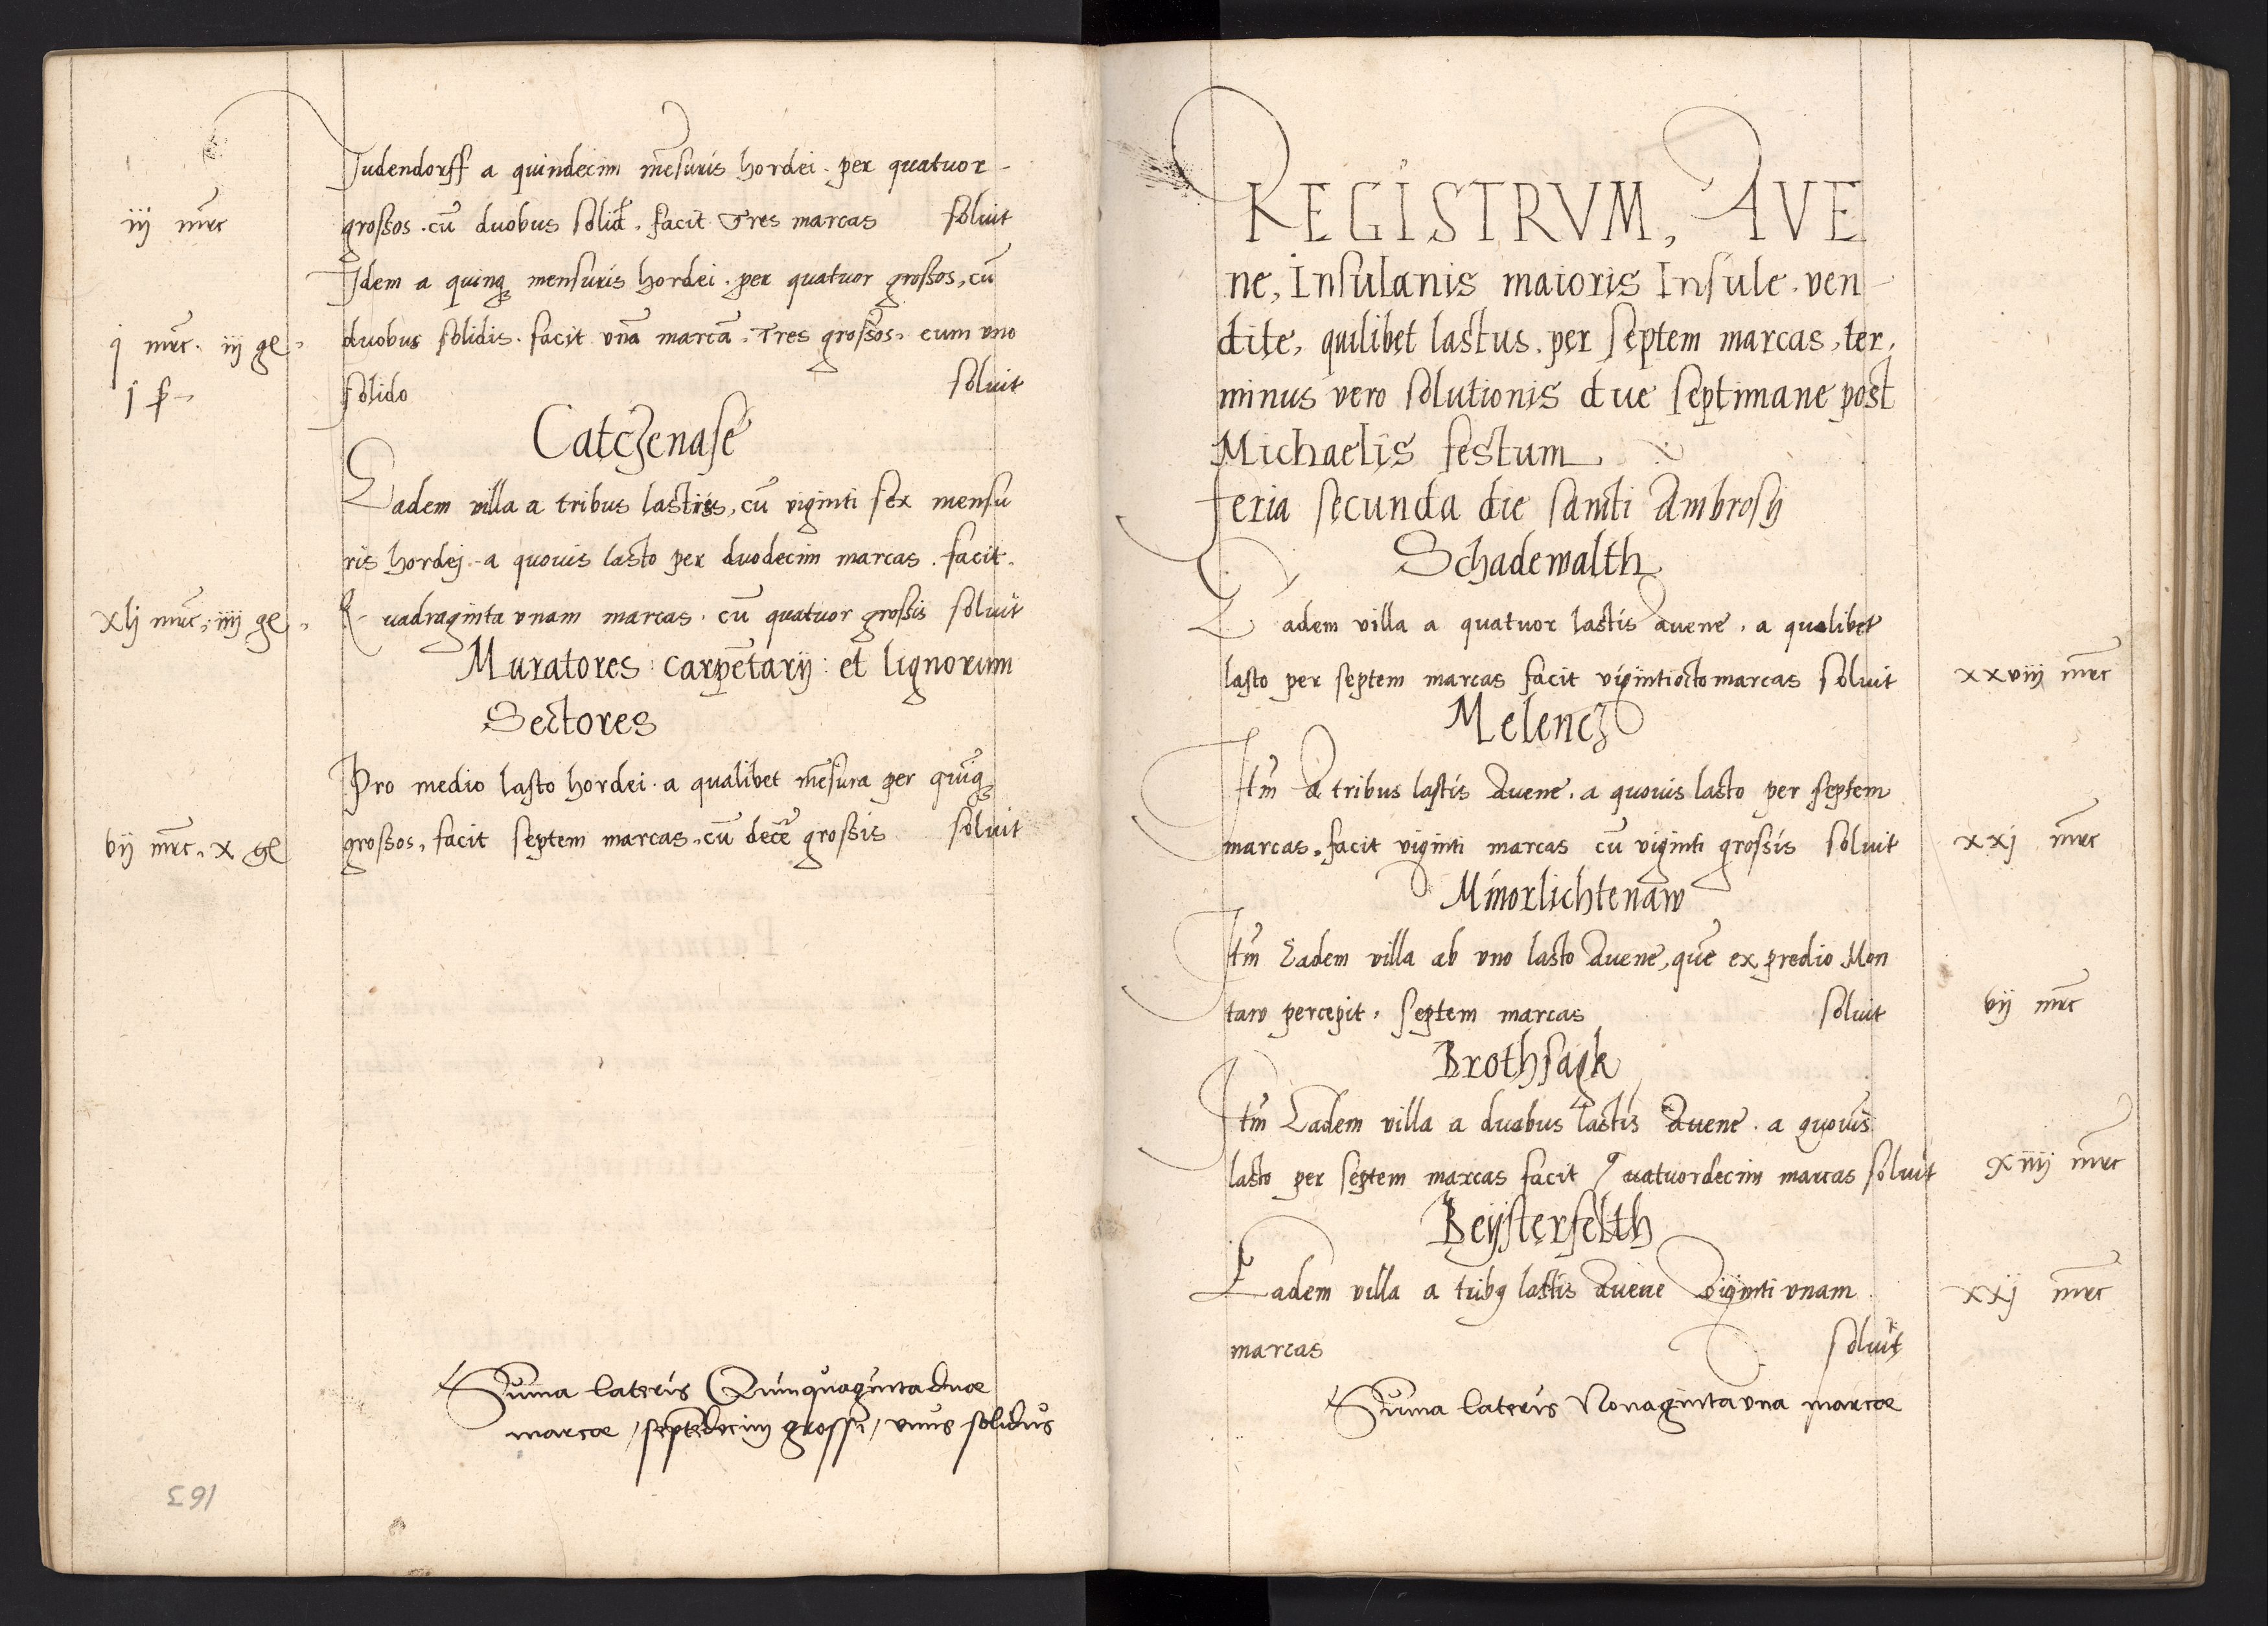 Judendorff a quindecim mēsuris hordei . per quatuor -
iij mrc grossos . cū duobus solid . facit Tres marcas soluit
Idem a quinq mensuris hordei . per quatuor grossos, cū
j mrc . iij gℓ . duobus solidis . facit vnā marcā . Tres grossos . cum vno
j ẜ - solido soluit
Catczenase
Eadem villa a tribus lastiis, cū viginti sex mensu
ris hordej - a quouis lasto per duodecim marcas . facit .
xlj mrc . iiij gℓ . Quadraginta vnam marcas . cū quatuor grossis soluit
Muratores : carpētarij : et lignorum
Sectores
Pro medio lasto hordei . a qualibet mēsura per quīq
vij mrc . x gℓ grossos, facit septem marcas . cū decē grossis soluit
Suma lateris Quinquaginta duae
marcae / septēdecim grossi / vnus solidus
163
REGISTRVM, AVE
ne, Insulanis maioris Insule . ven -
dite, quilibet lastus . per septem marcas, ter .
minus vero solutionis due septimane post
Michaelis festum
feria secunda die sancti Ambrosij
Schadewalth
Eadem villa a quatuor lastis auene . a qualibet
lasto per septem marcas facit vigintiocto marcas soluit xxviij mrc
Melencz
Itm̄ A tribus lastis Auene . a quouis lasto per septem
marcas, facit viginti marcas cū viginti grossis soluit xxj mrc
Minorlichtenaw
Itm̄ Eadem villa ab vno lasto Auene, quē ex predio Mon
taw percepit . septem marcas soluit vij mrc
Brothsagk
Itm̄ Eadem villa a duobus lastis Auene . a quouis
lasto per septem marcas facit quatuordecim marcas soluit xiiij mrc
Beysterfelth
Eadem villa a tribq lastis Auene viginti vnam xxj mrc
marcas soluit
Suma lateris Nonaginta vna marcae